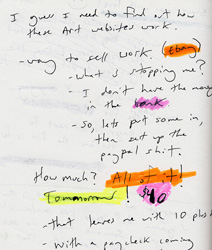 I guess I need to find out how
these Art websites work.
- way to sell work. Ebay
- what's stopping me?
- I don't have the money
in the bank
- So, lets put some in,
then set up the
paypal shit.
How much? All of it!
Tomorrow! $40
- that leaves me with 10 plus
with a paycheck coming